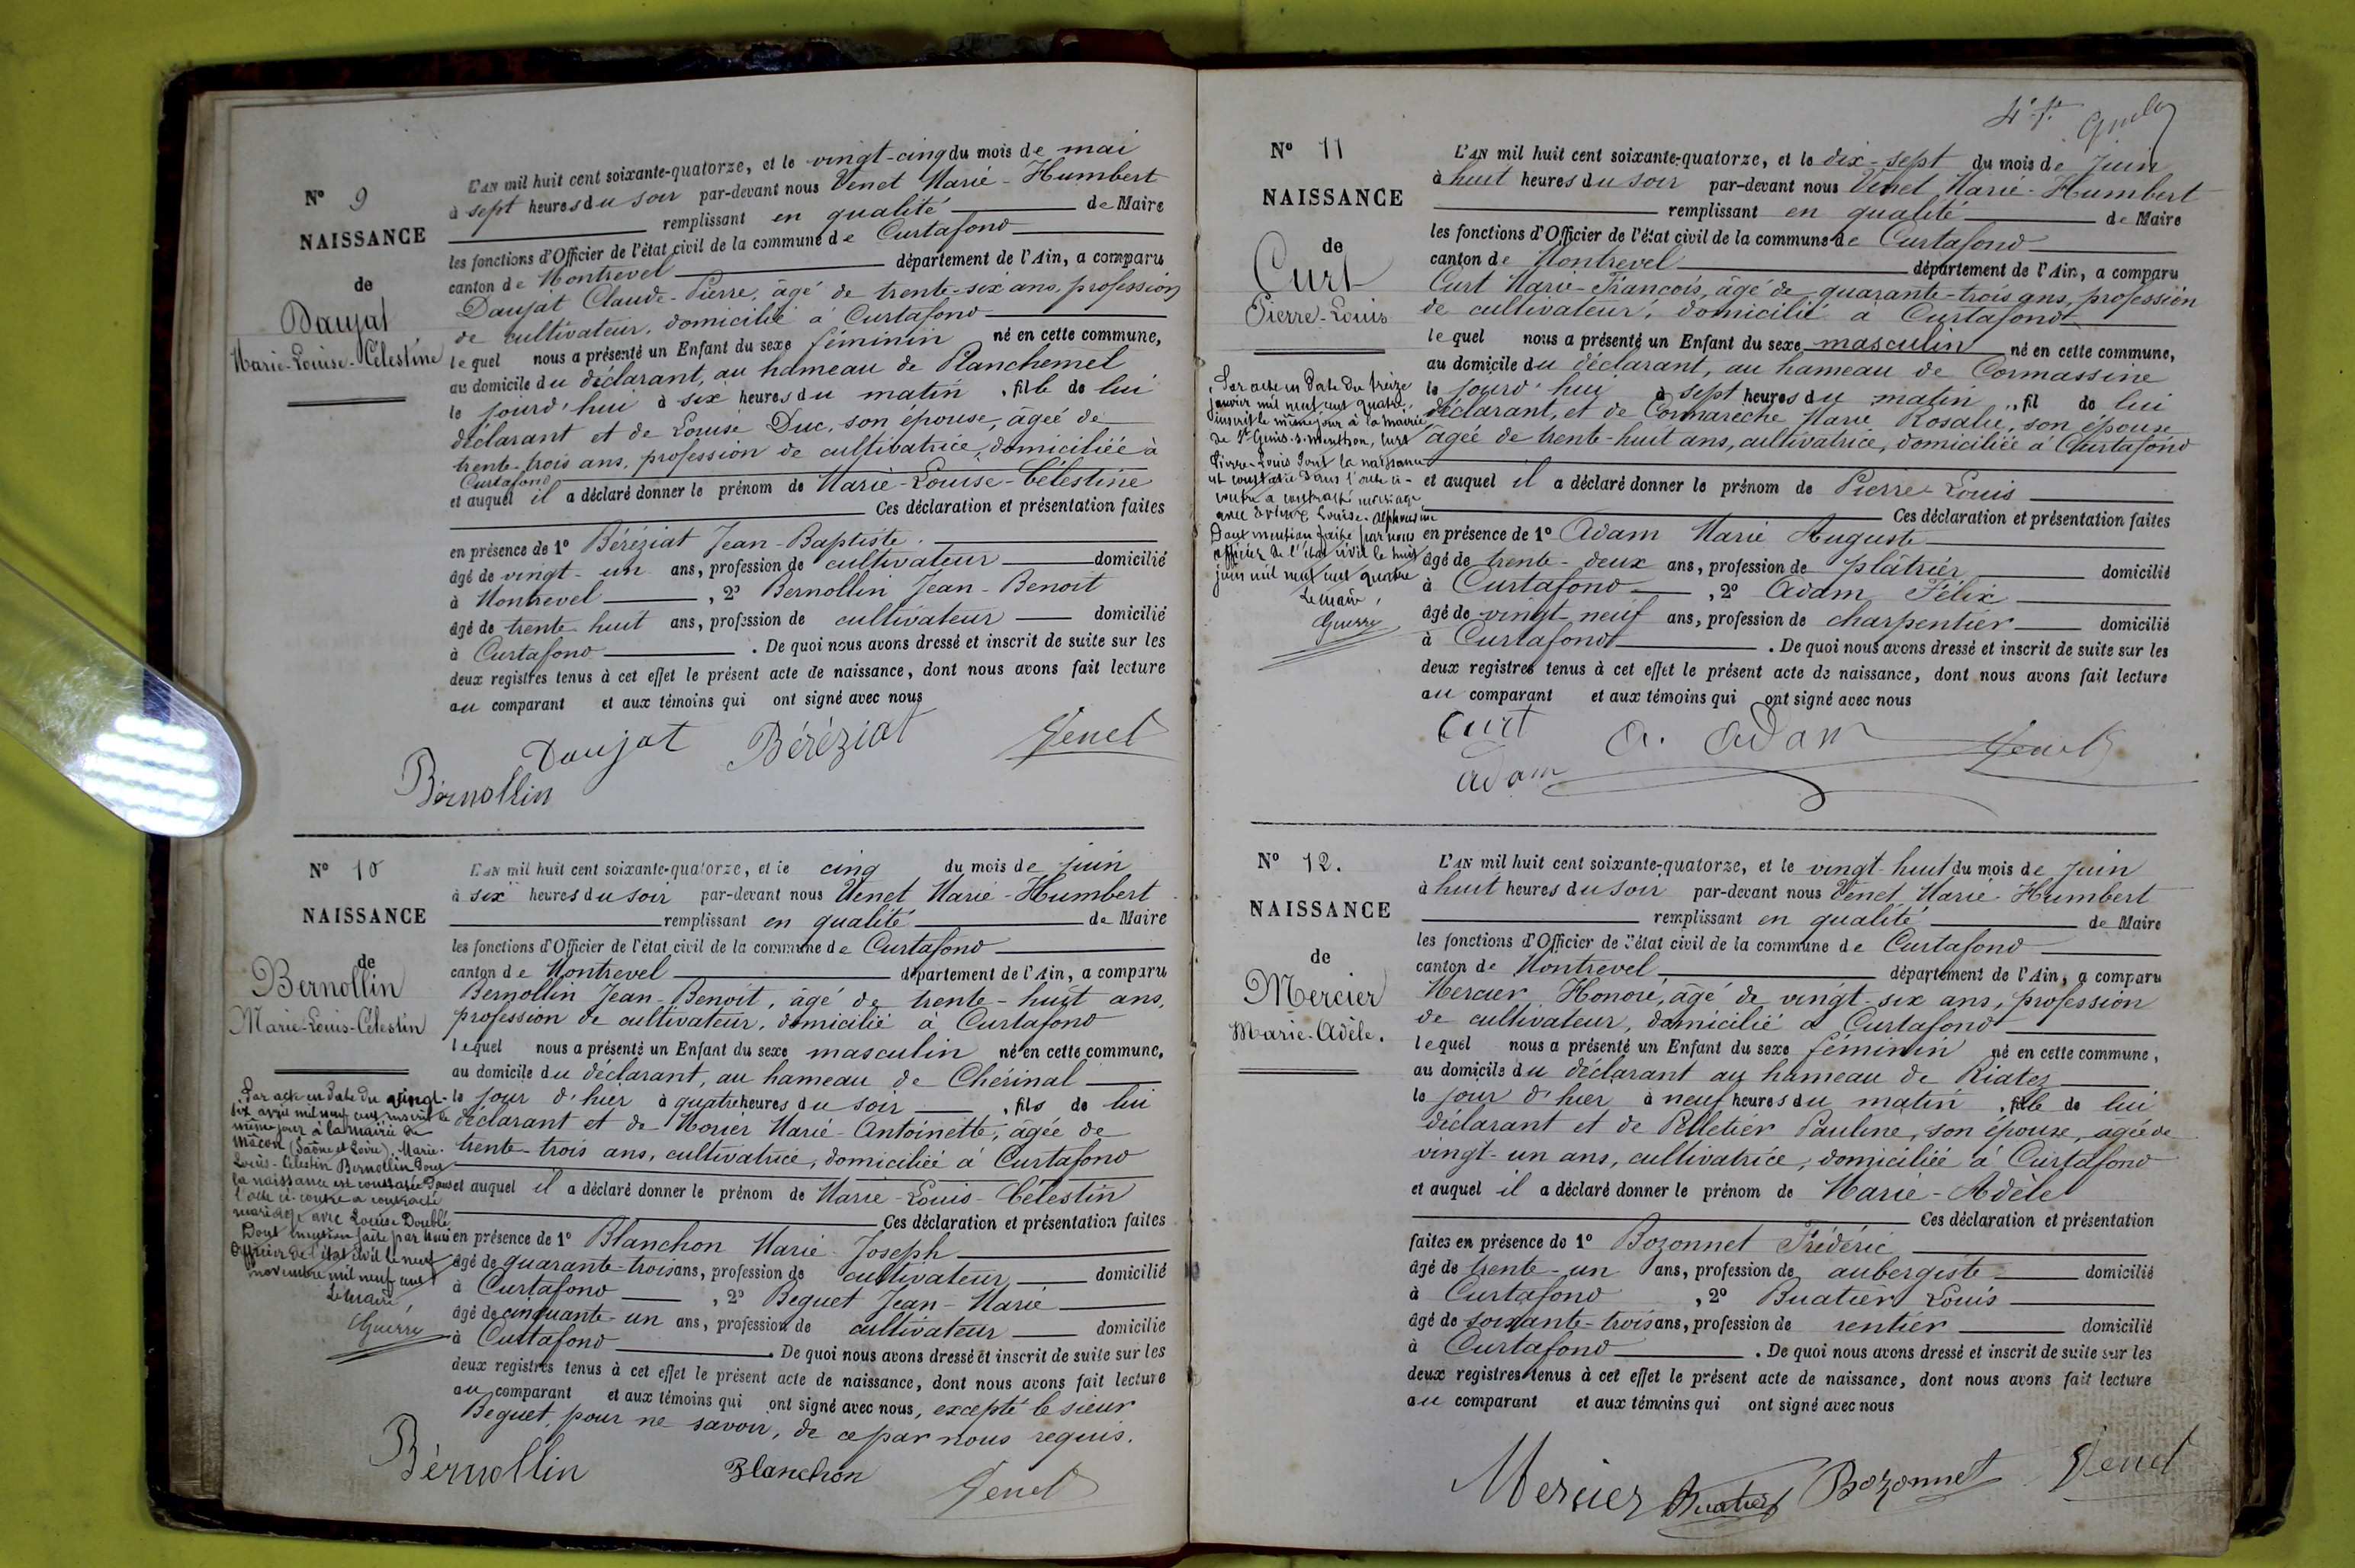 Nº 9
NAISSANCE
de
Daujat
Marie-Louise-Célestine
L'AN mil huit cent soixante-quatorze, et le vingt-cinq du mois de mai
à sept heures du soir par-devant nous Venet Marie-Humbert
remplissant en qualité de Maire
les fonctions d'Officier de l'état civil de la commune de Curtafond
canton de Montrevel département de l'Ain, a comparu
Daujat Claude-Pierre, âgé de trente-six ans, profession
de cultivateur, domicilié à Curtafond
lequel nous a présenté un Enfant du sexe féminin né en cette commune,
au domicile du déclarant, au hameau de Planchemel
le jourd'hui à six heures du matin, fille de lui
déclarant et de Louise Duc, son épouse, âgée de
trente-trois ans, profession de cultivatrice, domiciliée à
Curtafond
et auquel il a déclaré donner le prénom de Marie-Louise-Célestine
Ces déclaration et présentation faites
en présence de 1º Béréziat Jean-Baptiste
âgé de vingt-un ans, profession de cultivateur domicilié
à Montrevel, 2º Bernollin Jean-Benoit
âgé de trente-huit ans, profession de cultivateur domicilié
à Curtafond. De quoi nous avons dressé et inscrit de suite sur les
deux registres tenus à cet effet le présent acte de naissance, dont nous avons fait lecture
au comparant et aux témoins qui ont signé avec nous
Daujat Béréziat Venet
Bernollin
Nº 10
NAISSANCE
de
Bernollin
Marie-Louis-Célestin
Par acte en date du vingt-
six avril mil neuf cent inscrit le
même jour à la mairie de
Mâcon (Saône et Loire), Marie-
Louis-Célestin Bernollin dont
la naissance est constatée dans
l'acte ci-contre a contracté
mariage avec Louise Double
Dont mention faite par nous
Officier de l'état civil le neuf
novembre mil neuf cent
Le maire,
Guerry
L'AN mil huit cent soixante-quatorze, et le cinq du mois de juin
à six heures du soir par-devant nous Venet Marie-Humbert
remplissant en qualité de Maire
les fonctions d'Officier de l'état civil de la commune de Curtafond
canton de Montrevel département de l'Ain, a comparu
Bernollin Jean-Benoit, âgé de trente-huit ans,
profession de cultivateur, domicilié à Curtafond
lequel nous a présenté un Enfant du sexe masculin né en cette commune,
au domicile du déclarant, au hameau de Chérinal
le jour d'hier à quatre heures du soir, fils de lui
déclarant et de Morier Marie-Antoinette, âgée de
trente-trois ans, cultivatrice, domiciliée à Curtafond
et auquel il a déclaré donner le prénom de Marie-Louis-Célestin
Ces déclaration et présentation faites
en présence de 1º Blanchon Marie-Joseph
âgé de quarante-trois ans, profession de cultivateur domicilié
à Curtafond, 2º Beguet Jean-Marie
âgé de cinquante-un ans, profession de cultivateur domicilié
à Curtafond. De quoi nous avons dressé et inscrit de suite sur les
deux registres tenus à cet effet le présent acte de naissance, dont nous avons fait lecture
au comparant et aux témoins qui ont signé avec nous, excepté le sieur
Beguet, pour ne savoir, de ce par nous requis.
Bernollin Blanchon Venet
4e f.
Nº 11
NAISSANCE
de
Curt
Pierre-Louis
Par acte en date du treize
janvier mil neuf cent quatre,
inscrit le même jour à la mairie
de St Genis-s-Menthon, Curt
Pierre-Louis dont la naissance
est constatée dans l'acte ci-
contre a contracté mariage
avec Louise-Alphonsine
Dont mention faite par nous
officier de l'état civil le huit
juin mil neuf cent quatre
Le maire,
Guerry
L'AN mil huit cent soixante-quatorze, et le dix-sept du mois de Juin
à huit heures du soir par-devant nous Venet Marie-Humbert
remplissant en qualité de Maire
les fonctions d'Officier de l'état civil de la commune de Curtafond
canton de Montrevel département de l'Ain, a comparu
Curt Marie-François, âgé de quarante-trois ans, profession
de cultivateur, domicilié à Curtafond
lequel nous a présenté un Enfant du sexe masculin né en cette commune,
au domicile du déclarant, au hameau de Cormassine
le jourd'hui à sept heures du matin, fil de lui
déclarant, et de Cormarèche Marie Rosalie, son épouse
âgée de trente-huit ans, cultivatrice, domiciliée à Curtafond
et auquel il a déclaré donner le prénom de Pierre-Louis
Ces déclaration et présentation faites
en présence de 1º Adam Marie Auguste
âgé de trente-deux ans, profession de plâtrier domicilié
à Curtafond, 2º Adam Félix
âgé de vingt-neuf ans, profession de charpentier domicilié
à Curtafond. De quoi nous avons dressé et inscrit de suite sur les
deux registres tenus à cet effet le présent acte de naissance, dont nous avons fait lecture
au comparant et aux témoins qui ont signé avec nous
Curt A. Adam Venet
Adam
Nº 12.
NAISSANCE
de
Mercier
Marie-Adèle.
L'AN mil huit cent soixante-quatorze, et le vingt-huit du mois de Juin
à huit heures du soir par-devant nous Venet Marie-Humbert
remplissant en qualité de Maire
les fonctions d'Officier de l'état civil de la commune de Curtafond
canton de Montrevel département de l'Ain, a comparu
Mercier Honoré, âgé de vingt-six ans, profession
de cultivateur, domicilié à Curtafond
lequel nous a présenté un Enfant du sexe féminin né en cette commune,
au domicile du déclarant au hameau de Riatez
le jour d'hier à neuf heures du matin, fille de lui
déclarant et de Pelletier Pauline, son épouse, âgée de
vingt-un ans, cultivatrice, domiciliée à Curtafond
et auquel il a déclaré donner le prénom de Marie-Adèle
Ces déclaration et présentation
faites en présence de 1º Bozonnet Frédéric
âgé de trente-un ans, profession de aubergiste domicilié
à Curtafond, 2º Buatier Louis
âgé de soixante-trois ans, profession de rentier domicilié
à Curtafond. De quoi nous avons dressé et inscrit de suite sur les
deux registres tenus à cet effet le présent acte de naissance, dont nous avons fait lecture
au comparant et aux témoins qui ont signé avec nous
Mercier Buatier Bozonnet Venet